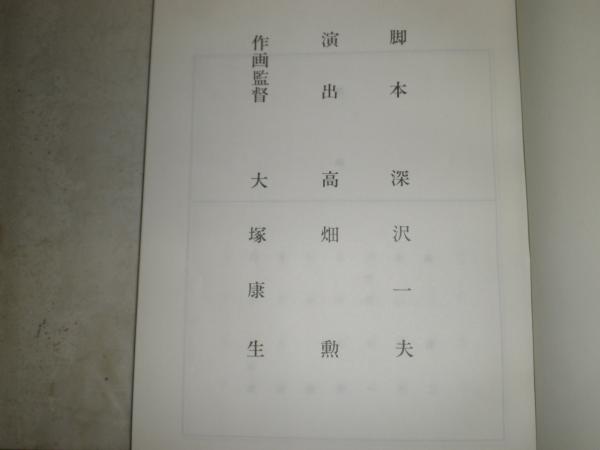 脚本 深沢一夫
演出 高畑勲
作画監督 大塚康生